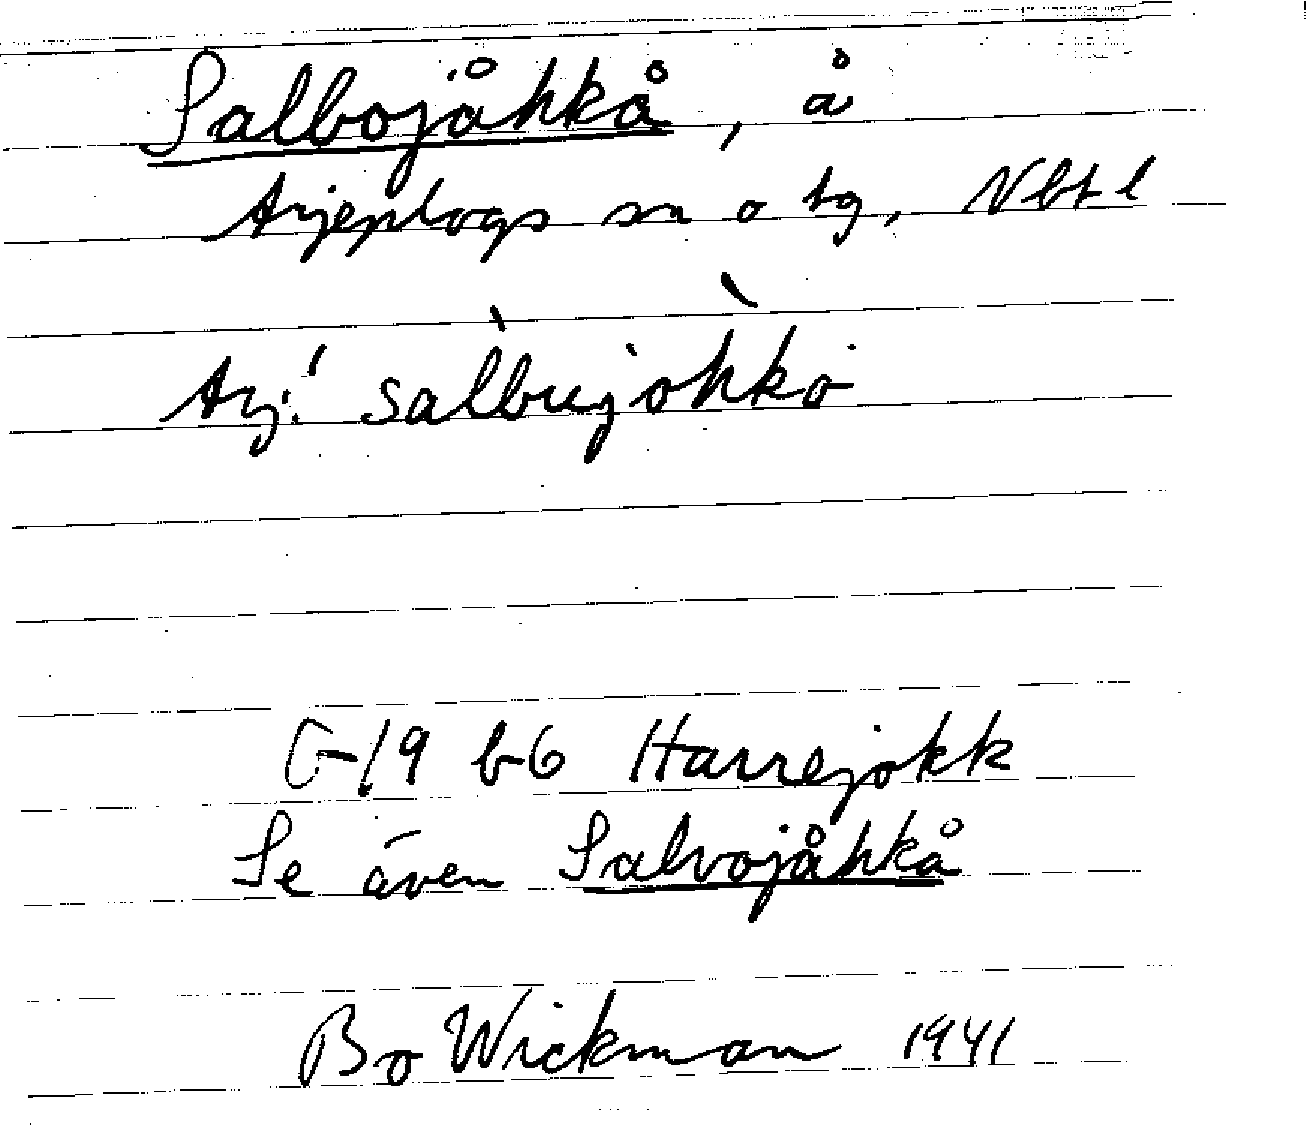 Salbojåhkå, å
Arjeplogs sn o tg, Nbtl
Arj! sàlbujòhkɷ
G-19 b-6 Harrejokk
Se även Salvojåhkå
Bo Wickman 1941